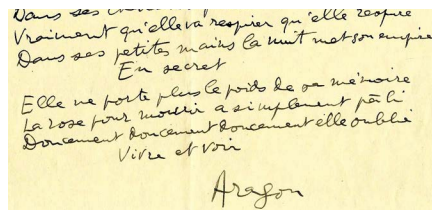 Dans ses
Vraiment qu'elle va respirer qu'elle respire
Dans ses petites mains la nuit met son empire
En secret
Elle ne porte plus le poids de sa mémoire
La rose pour mourir a simplement pâli
Doucement doucement doucement elle oublie
Vivre et voir
Aragon